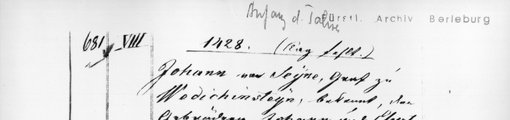 Anfang d. Jahres
Fürstl. Archiv Berleburg
681 VIII 1428. (Tag fehlt.)
Johann von Seyne, Graf zu
Wedichinsteyn, bekennt, den
Gebrüdern Johann und